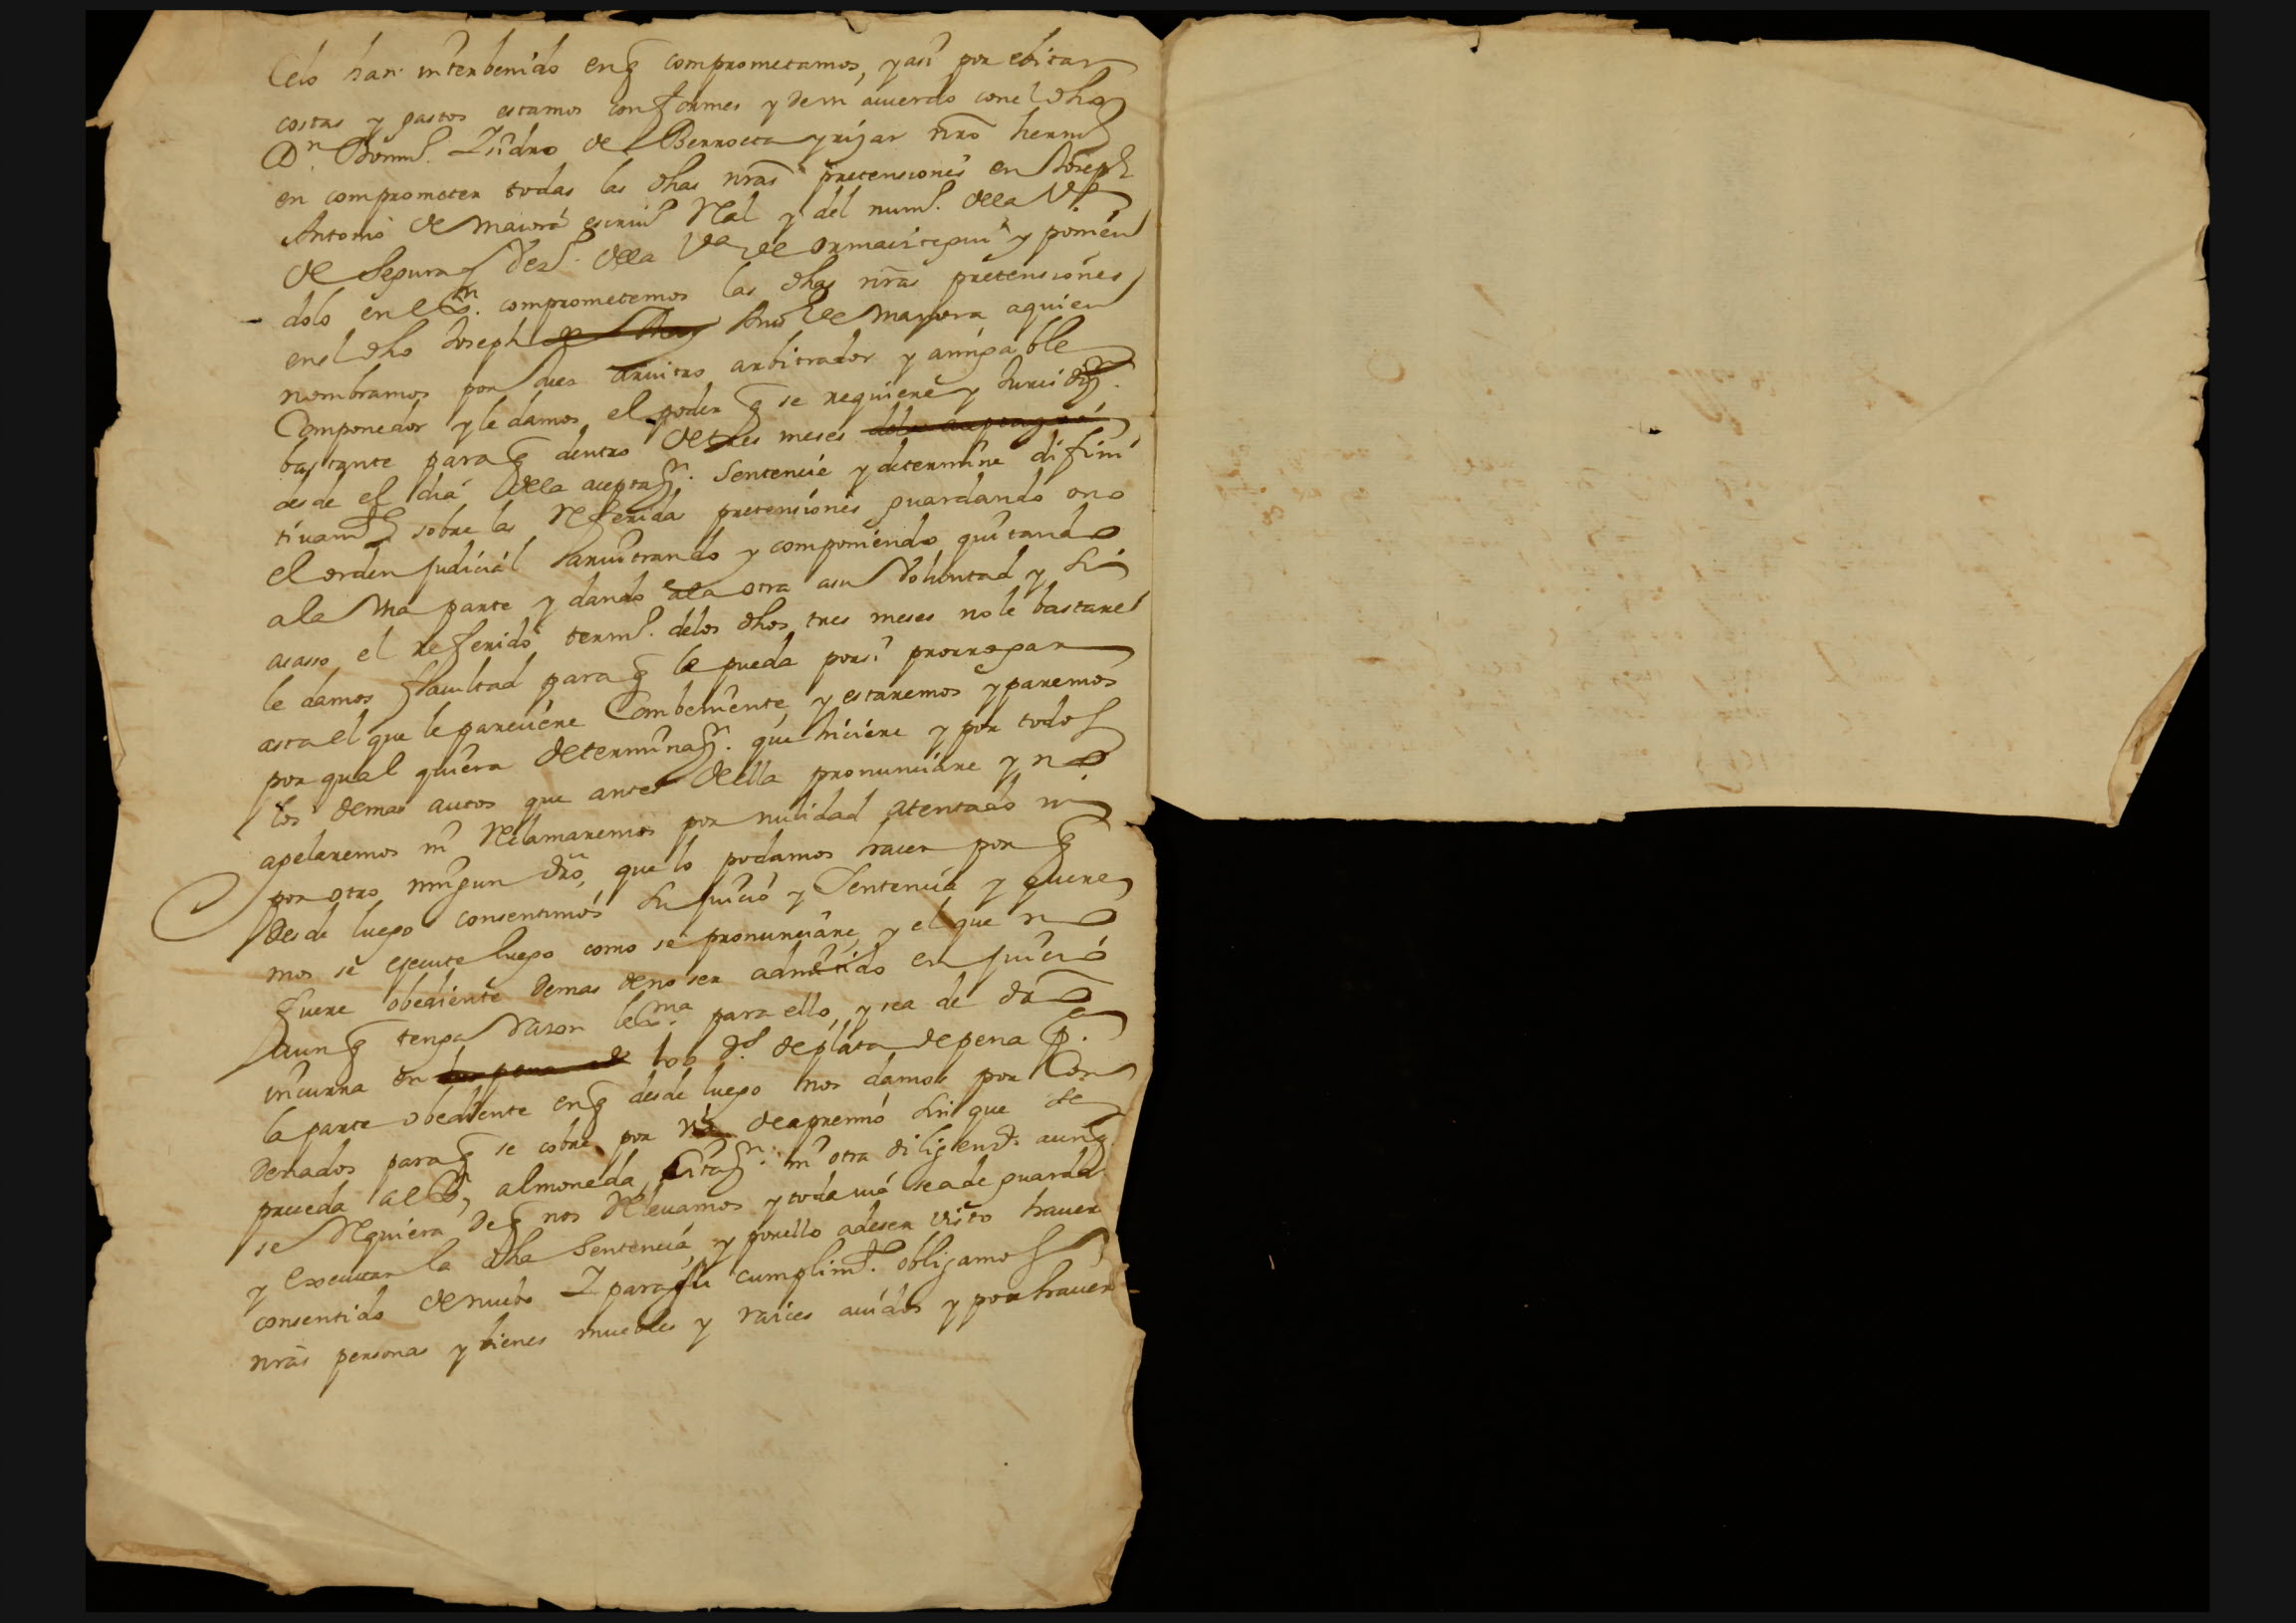 Celo han interbenido enq comprometamos, y asi por ebitar
costas y gastos estamos conformes y de un acuerdo con el dho
Dn. Isidro de Berroeta y rijar nro herm.
en comprometer todas las dhas nras pretensiones en Joseph
Antonio de Maiora escriu. Rl y del num. de la Va
de Segura Vez. de la Va de Ormaiztegui y ponien
dolo en comprometemos las dhas nras pretensiones
en el dho Joseph Anto de Mayora a quien
nombramos por Jues aruitro arbitrador y amigable
Componedor y le damos el poder q se requiere y Jurisdn.
bastante paraq dentro de tres meses
desde el dia de la aceptaon. sentencie y determine difini
tiuamte sobre las Referidas pretensiones guardando o no
el orden judicial aruitrando y componiendo quitando
a la Vna parte y dando a la otra a su Voluntad y Si
acasso el referido termo. de los dhos tres meses no le bastare
le damos facultad para q le pueda por si prorrogar
asta el que le pareciere Combeniente y estaremos y paremos
por qual quiera determinaon. que hiciere y por todos
los demas autos que antes de ella pronunciare y no
apelaremos ni Reclamaremos por nulidad atentado ni
por otro ningun dro, que lo podamos hacer por q
desde luego consentimos Su juicio y Sentencia y quere
mos se ejecute luego como se pronunciare, y el que no
fuere obediente demas de no ser admitido en juicio
aunq tenga razon lexma. para ello, y sea de dro
incurra en 100 ds. de plata de pena pa.
la parte obediente enq desde luego nos damos por Con
denados paraq se cobre por via de apremio sin que se
preceda almoneda, Citaon. ni otra diligena. aunq
se Requiera de q nos Releuamos y toda via sea de guardar
y executar la dha Sentencia, y por ello a de ser visto hauer
consentido de nuebo Y para su cumplimto. obligamos
nras personas y bienes muebles y raices auidos y por hauer